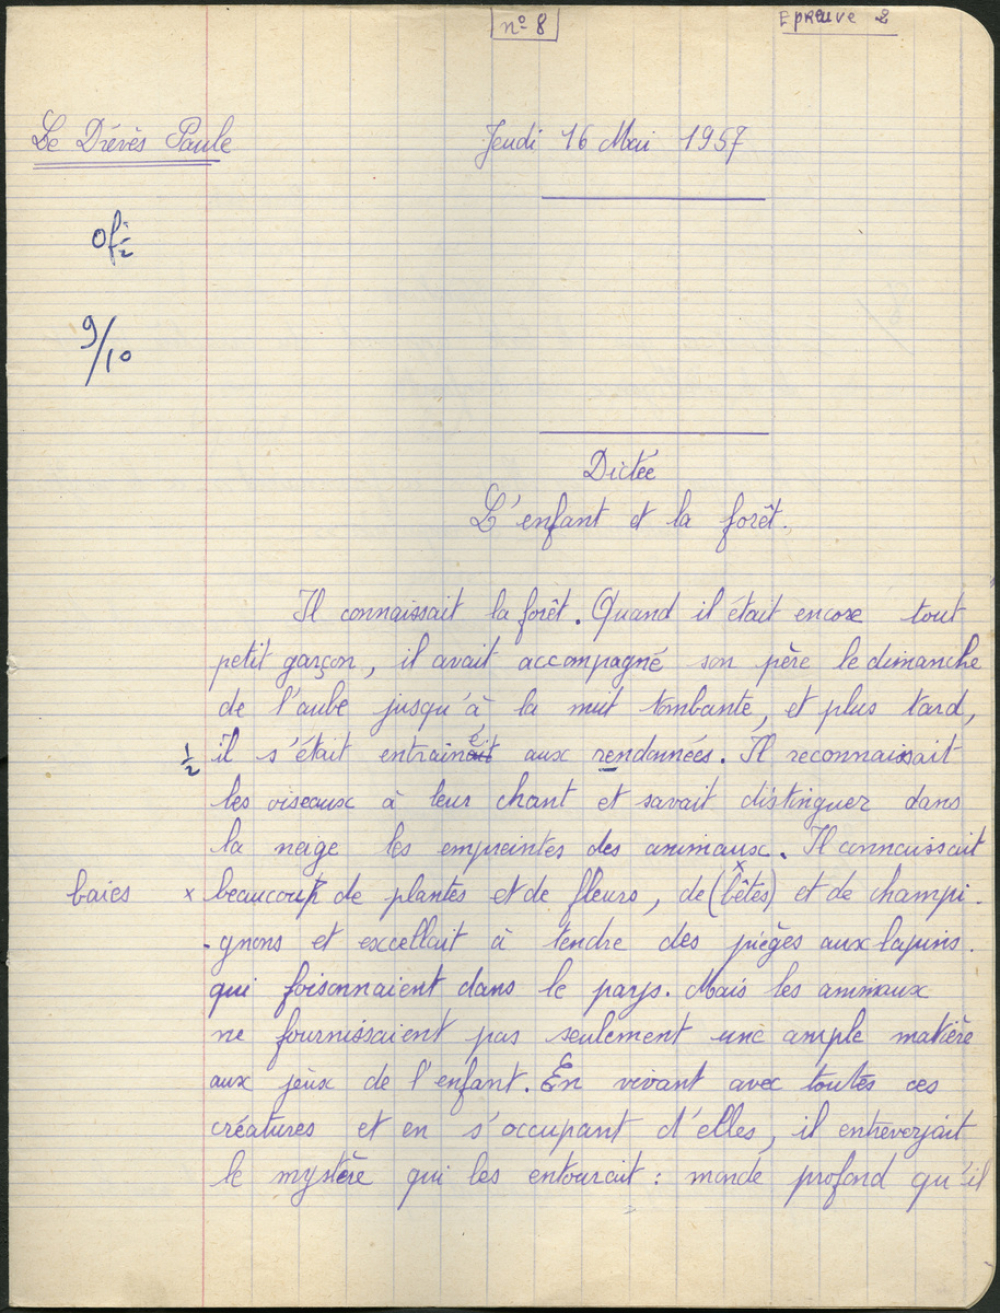 n° 8
Epreuve 2
Le Dreves Paule
Jeudi 16 Mai 1957
0f ½
9/10
Dictée
L'enfant et la forêt.
Il connaissait la forêt. Quand il était encore tout
petit garçon, il avait accompagné son père le dimanche
de l'aube jusqu'à la nuit tombante, et plus tard,
½ il s'était entrainé aux rendonnées. Il reconnaissait
les oiseaux à leur chant et savait distinguer dans
la neige les empreintes des animaux. Il connaissait
baies x beaucoup de plantes et de fleurs, de (bêtes) x et de champi-
-gnons et excellait à tendre des pièges aux lapins.
qui foisonnaient dans le pays. Mais les animaux
ne fournissaient pas seulement une ample matière
aux jeux de l'enfant. En vivant avec toutes ces
créatures et en s'occupant d'elles, il entreveryait
le mystère qui les entourait : monde profond qu'il